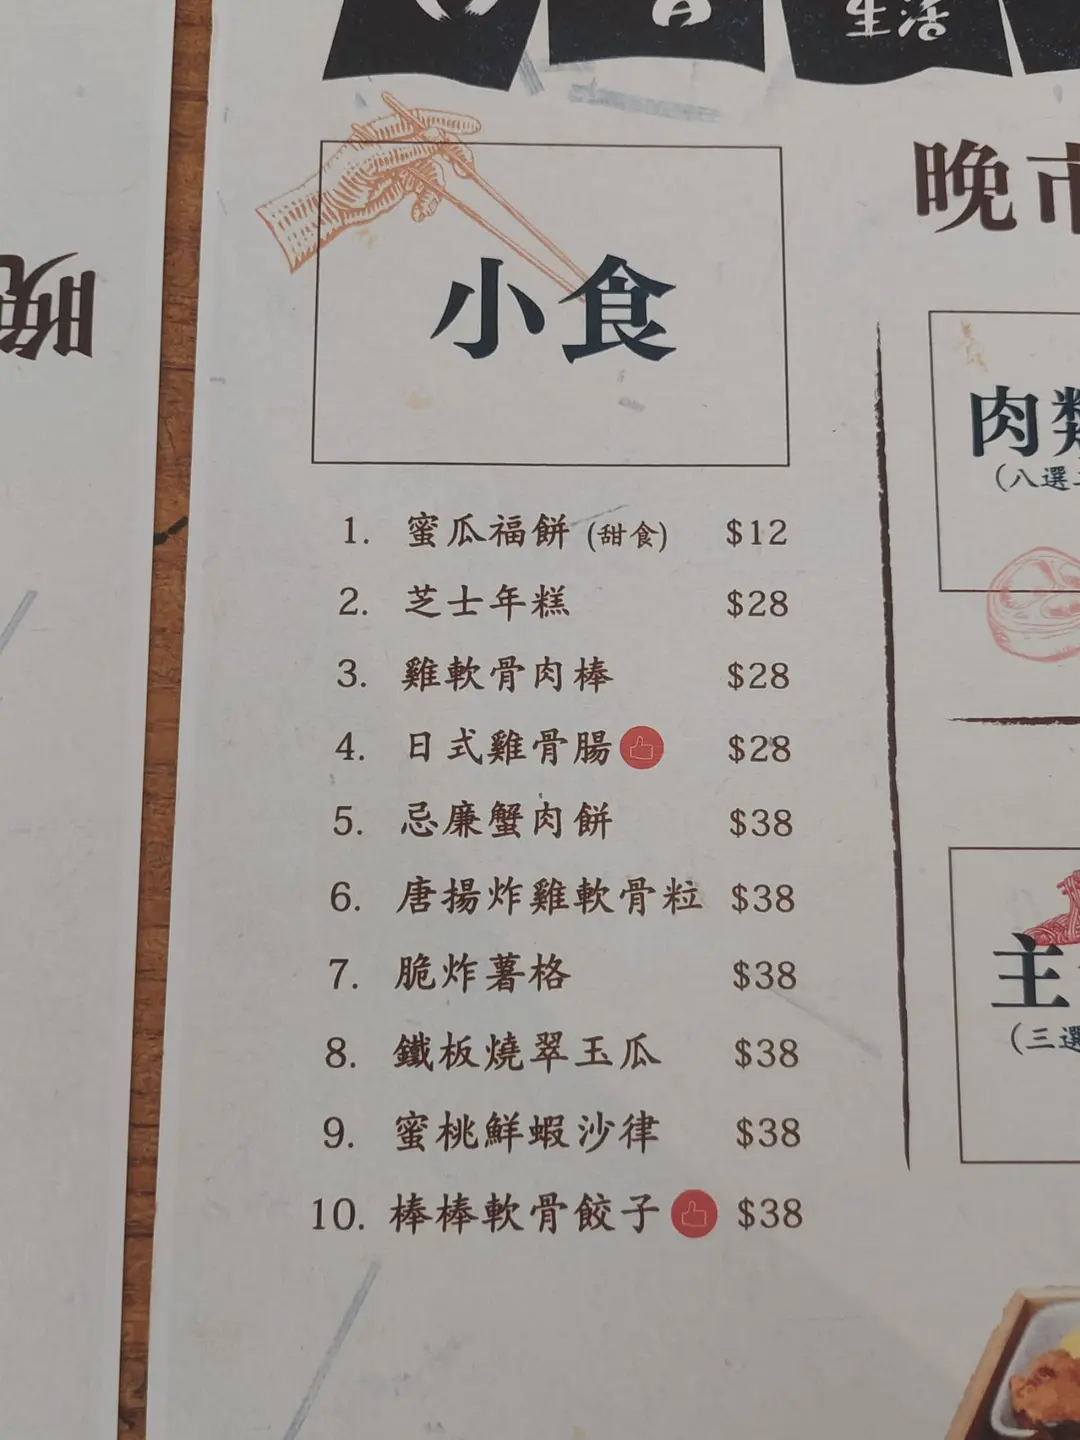 生活
小食
晚市
肉類
(八選
1. 蜜瓜福餅 (甜食) $12
2. 芝士年糕 $28
3. 雞軟骨肉棒 $28
4. 日式雞骨腸 $28
5. 忌廉蟹肉餅 $38
6. 唐揚炸雞軟骨粒 $38
7. 脆炸薯格 $38
8. 鐵板燒翠玉瓜 $38
9. 蜜桃鮮蝦沙律 $38
10. 棒棒軟骨餃子 $38
主
(三選
晚